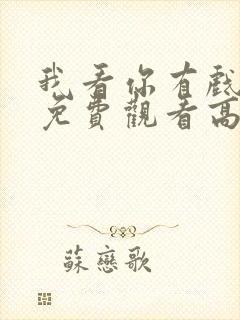 我看你有戲
免費觀看高
蘇戀歌